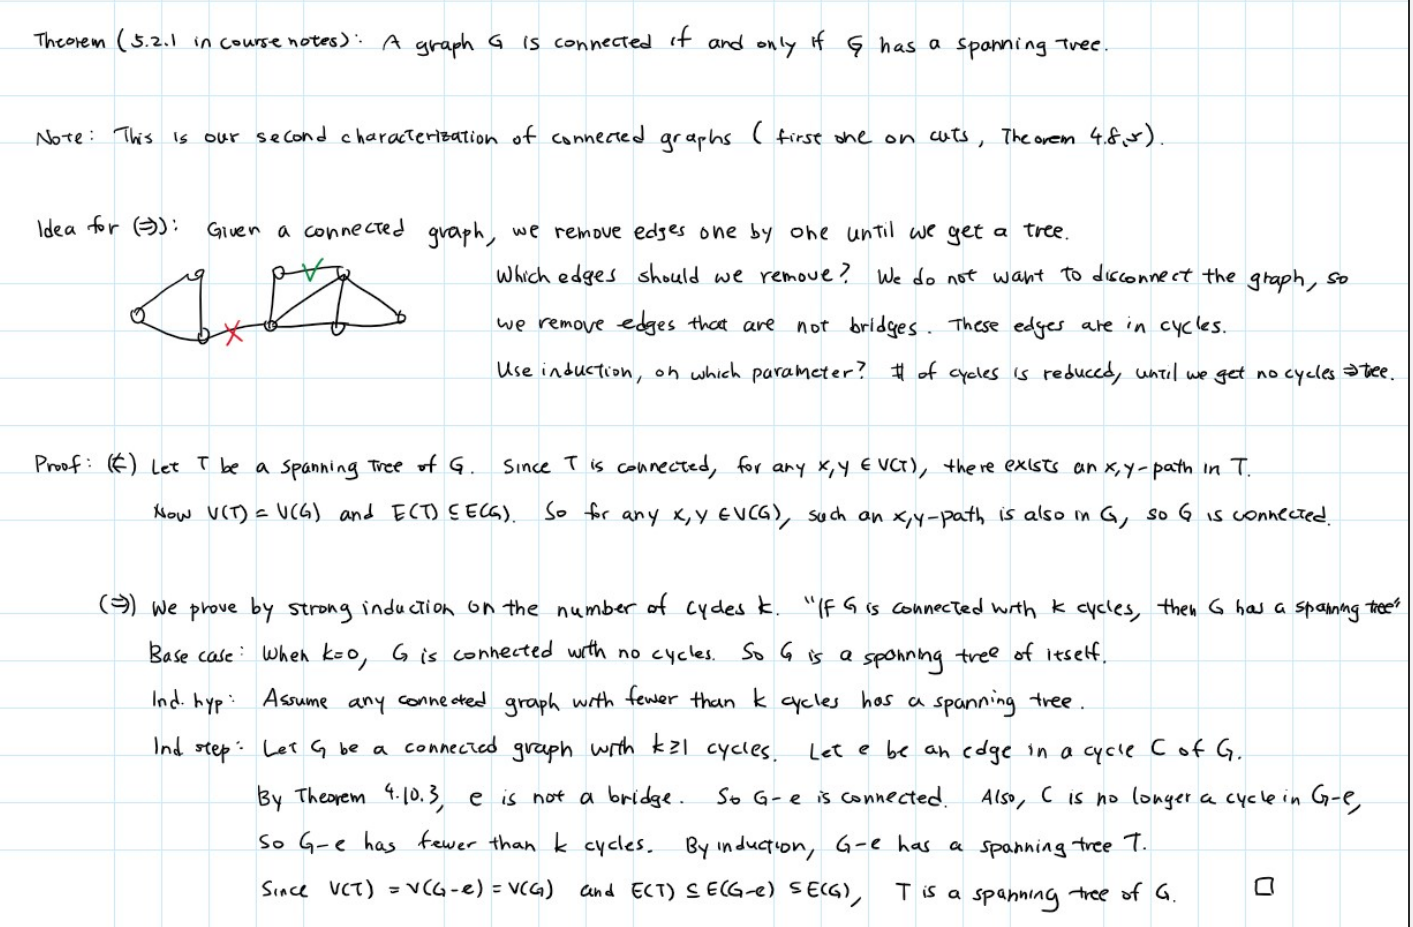 Theorem (5.2.1 in course notes): A graph G is connected if and only if G has a spanning tree.
Note: This is our second characterization of connected graphs (first one on cuts, Theorem 4.8.5).
Idea for (⇒): Given a connected graph, we remove edges one by one until we get a tree.
Which edges should we remove? We do not want to disconnect the graph, so
we remove edges that are not bridges. These edges are in cycles.
Use induction, on which parameter? # of cycles is reduced, until we get no cycles ⇒ tree.
Proof: (⇐) Let T be a spanning tree of G. Since T is connected, for any x,y ∈ V(T), there exists an x,y-path in T.
Now V(T) = V(G) and E(T) ⊆ E(G). So for any x,y ∈ V(G), such an x,y-path is also in G, so G is connected.
(⇒) We prove by strong induction on the number of cycles k. "If G is connected with k cycles, then G has a spanning tree"
Base case: When k=0, G is connected with no cycles. So G is a spanning tree of itself.
Ind. hyp: Assume any connected graph with fewer than k cycles has a spanning tree.
Ind step: Let G be a connected graph with k≥1 cycles. Let e be an edge in a cycle C of G.
By Theorem 4.10.3, e is not a bridge. So G-e is connected. Also, C is no longer a cycle in G-e,
so G-e has fewer than k cycles. By induction, G-e has a spanning tree T.
Since V(T) = V(G-e) = V(G) and E(T) ⊆ E(G-e) ⊆ E(G), T is a spanning tree of G. □